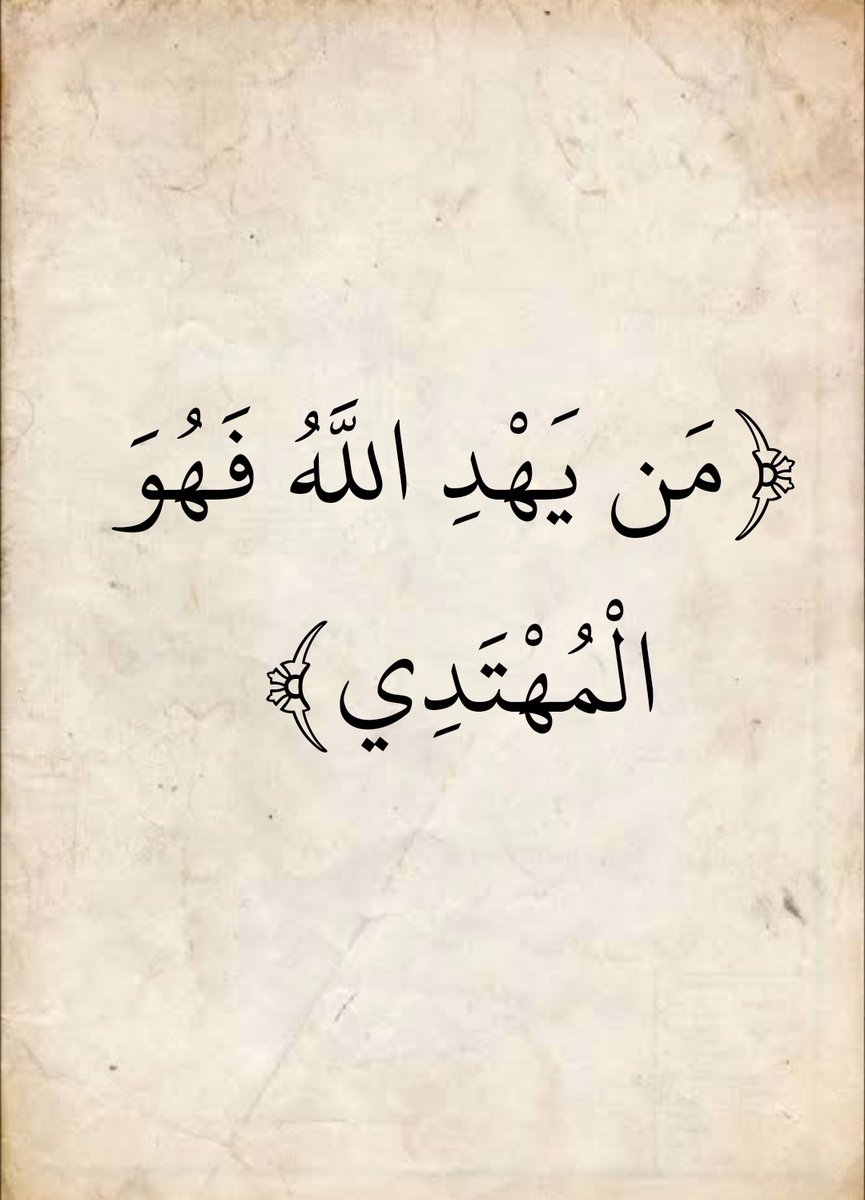 ﴿مَن يَهْدِ اللَّهُ فَهُوَ
الْمُهْتَدِي﴾